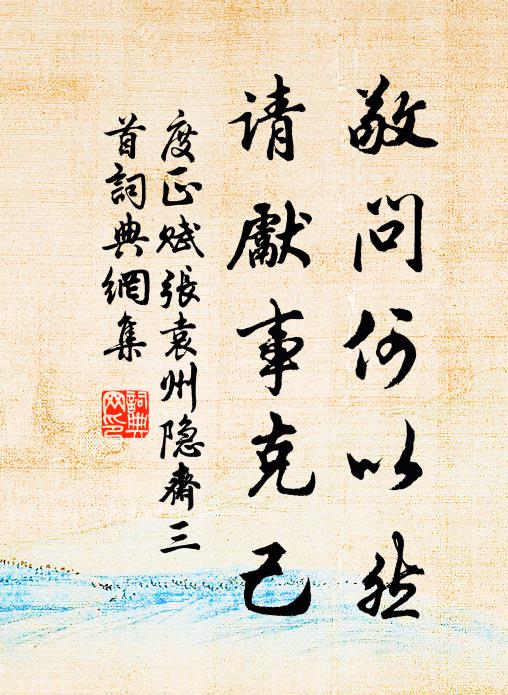 敬问何以然
请献事克己
度正赋张袁州隐斋三
首词典网集
詞典网印